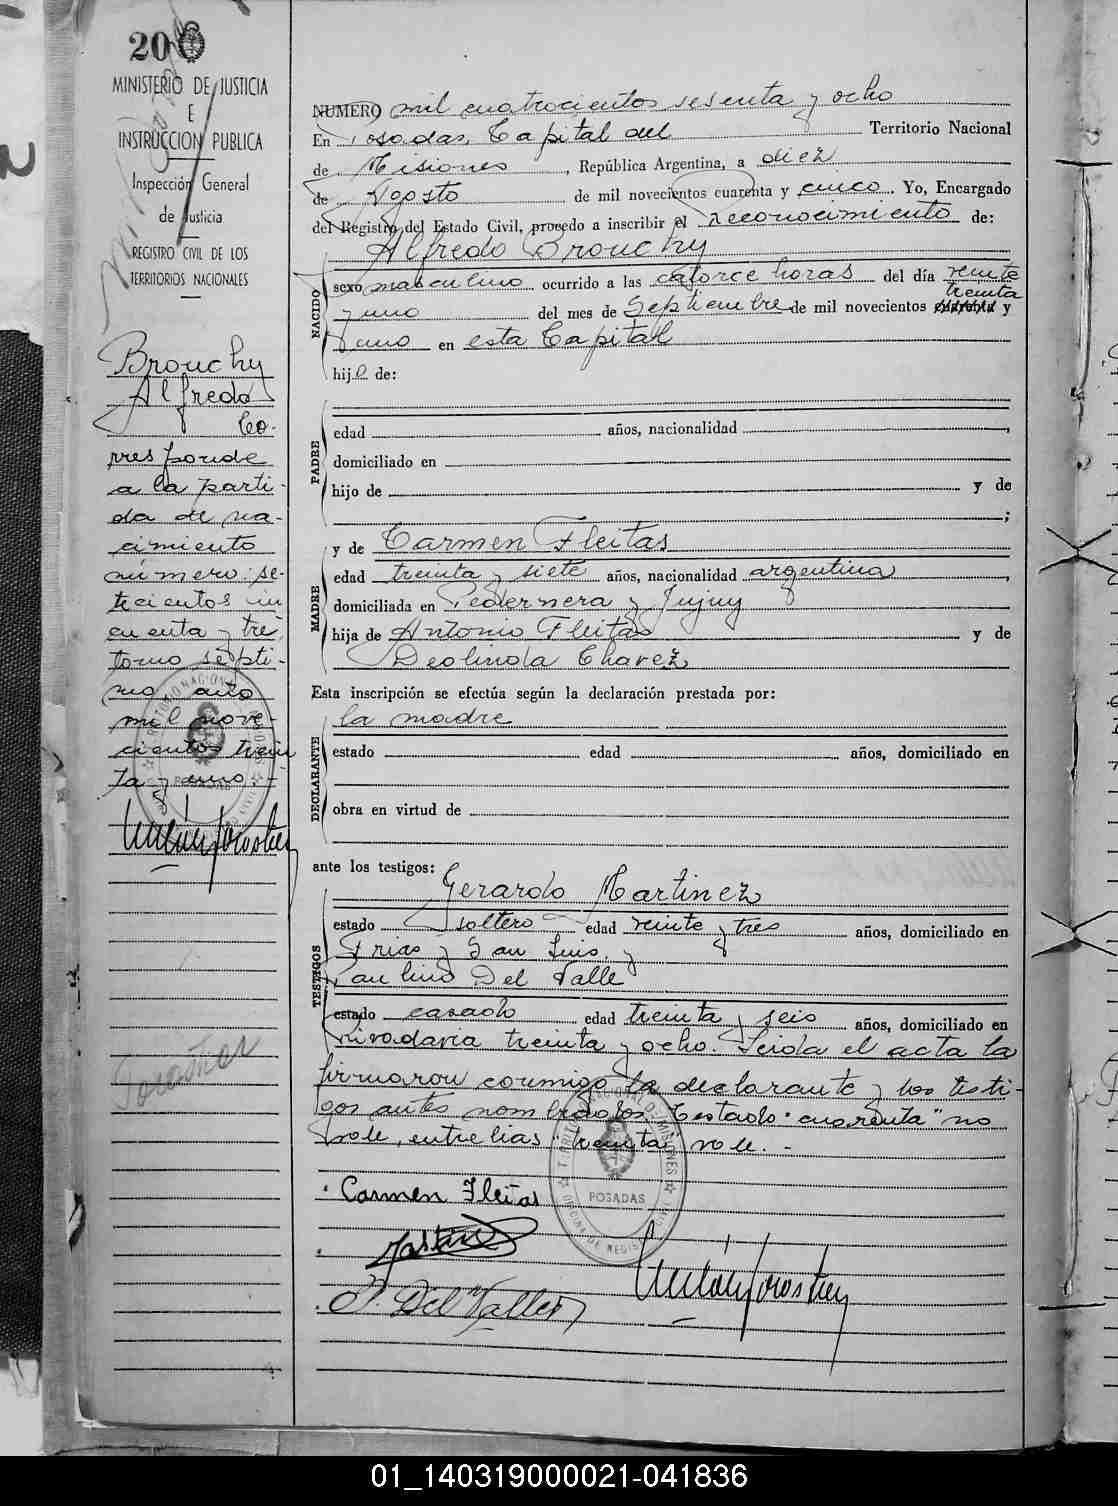 206
MINISTERIO DE JUSTICIA
E
INSTRUCCION PUBLICA
Inspección General
de Justicia
REGISTRO CIVIL DE LOS
TERRITORIOS NACIONALES
Brouchy
Alfredo
Co-
rresponde
a la parti-
da de na-
cimiento
número: se-
tecientos cin
cuenta y tres
tomo septi-
mo año
mil nove-
cientos trein
ta y uno.-
NUMERO mil cuatrocientos sesenta y ocho
En Posadas, Capital del Territorio Nacional
de Misiones, República Argentina, a diez
de Agosto de mil novecientos cuarenta y cinco. Yo, Encargado
del Registro del Estado Civil, procedo a inscribir el reconocimiento de:
Alfredo Brouchy
NACIDO
sexo masculino ocurrido a las catorce horas del día veinte
y uno del mes de Septiembre de mil novecientos treinta y
uno en esta Capital
hijo de:
PADRE
edad años, nacionalidad ,
domiciliado en
hijo de y de
;
MADRE
y de Carmen Fleitas
edad treinta y siete años, nacionalidad argentina,
domiciliada en Pedernera y Jujuy
hija de Antonio Fleitas y de
Deolinda Chavez
Esta inscripción se efectúa según la declaración prestada por:
la madre
DECLARANTE
estado edad años, domiciliado en
obra en virtud de
ante los testigos:
Gerardo Martinez
TESTIGOS
estado soltero edad veinte y tres años, domiciliado en
Frias y San Luis, y
Paulino Del Valle
estado casado edad treinta y seis años, domiciliado en
Rivadavia treinta y ocho. Leida el acta la
firmaron conmigo la declarante y los testi-
gos antes nombrados. Testado "cuarenta" no
vale, entre lias "treinta" vale. -
TERRITORIO NACIONAL DE MISIONES
POSADAS
OFICINA DE REGISTRO CIVIL
Carmen Fleitas
Martinez
P. Del Valle
01_140319000021-041836